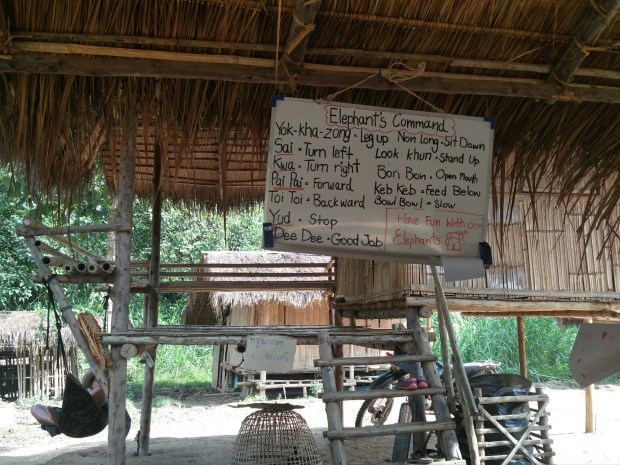 Elephant's Command
Yok-kha-zong • Leg up
Sai • Turn left
Kwa • Turn right
Pai Pai • Forward
Toi Toi • Backward
Yud • Stop
Dee Dee • Good Job
Non Long • Sit Down
Look khun • Stand Up
Bon Bon • Open Mouth
Keb Keb = Feed Below
Bowl Bowl = Slow
Have Fun With our
Elephants